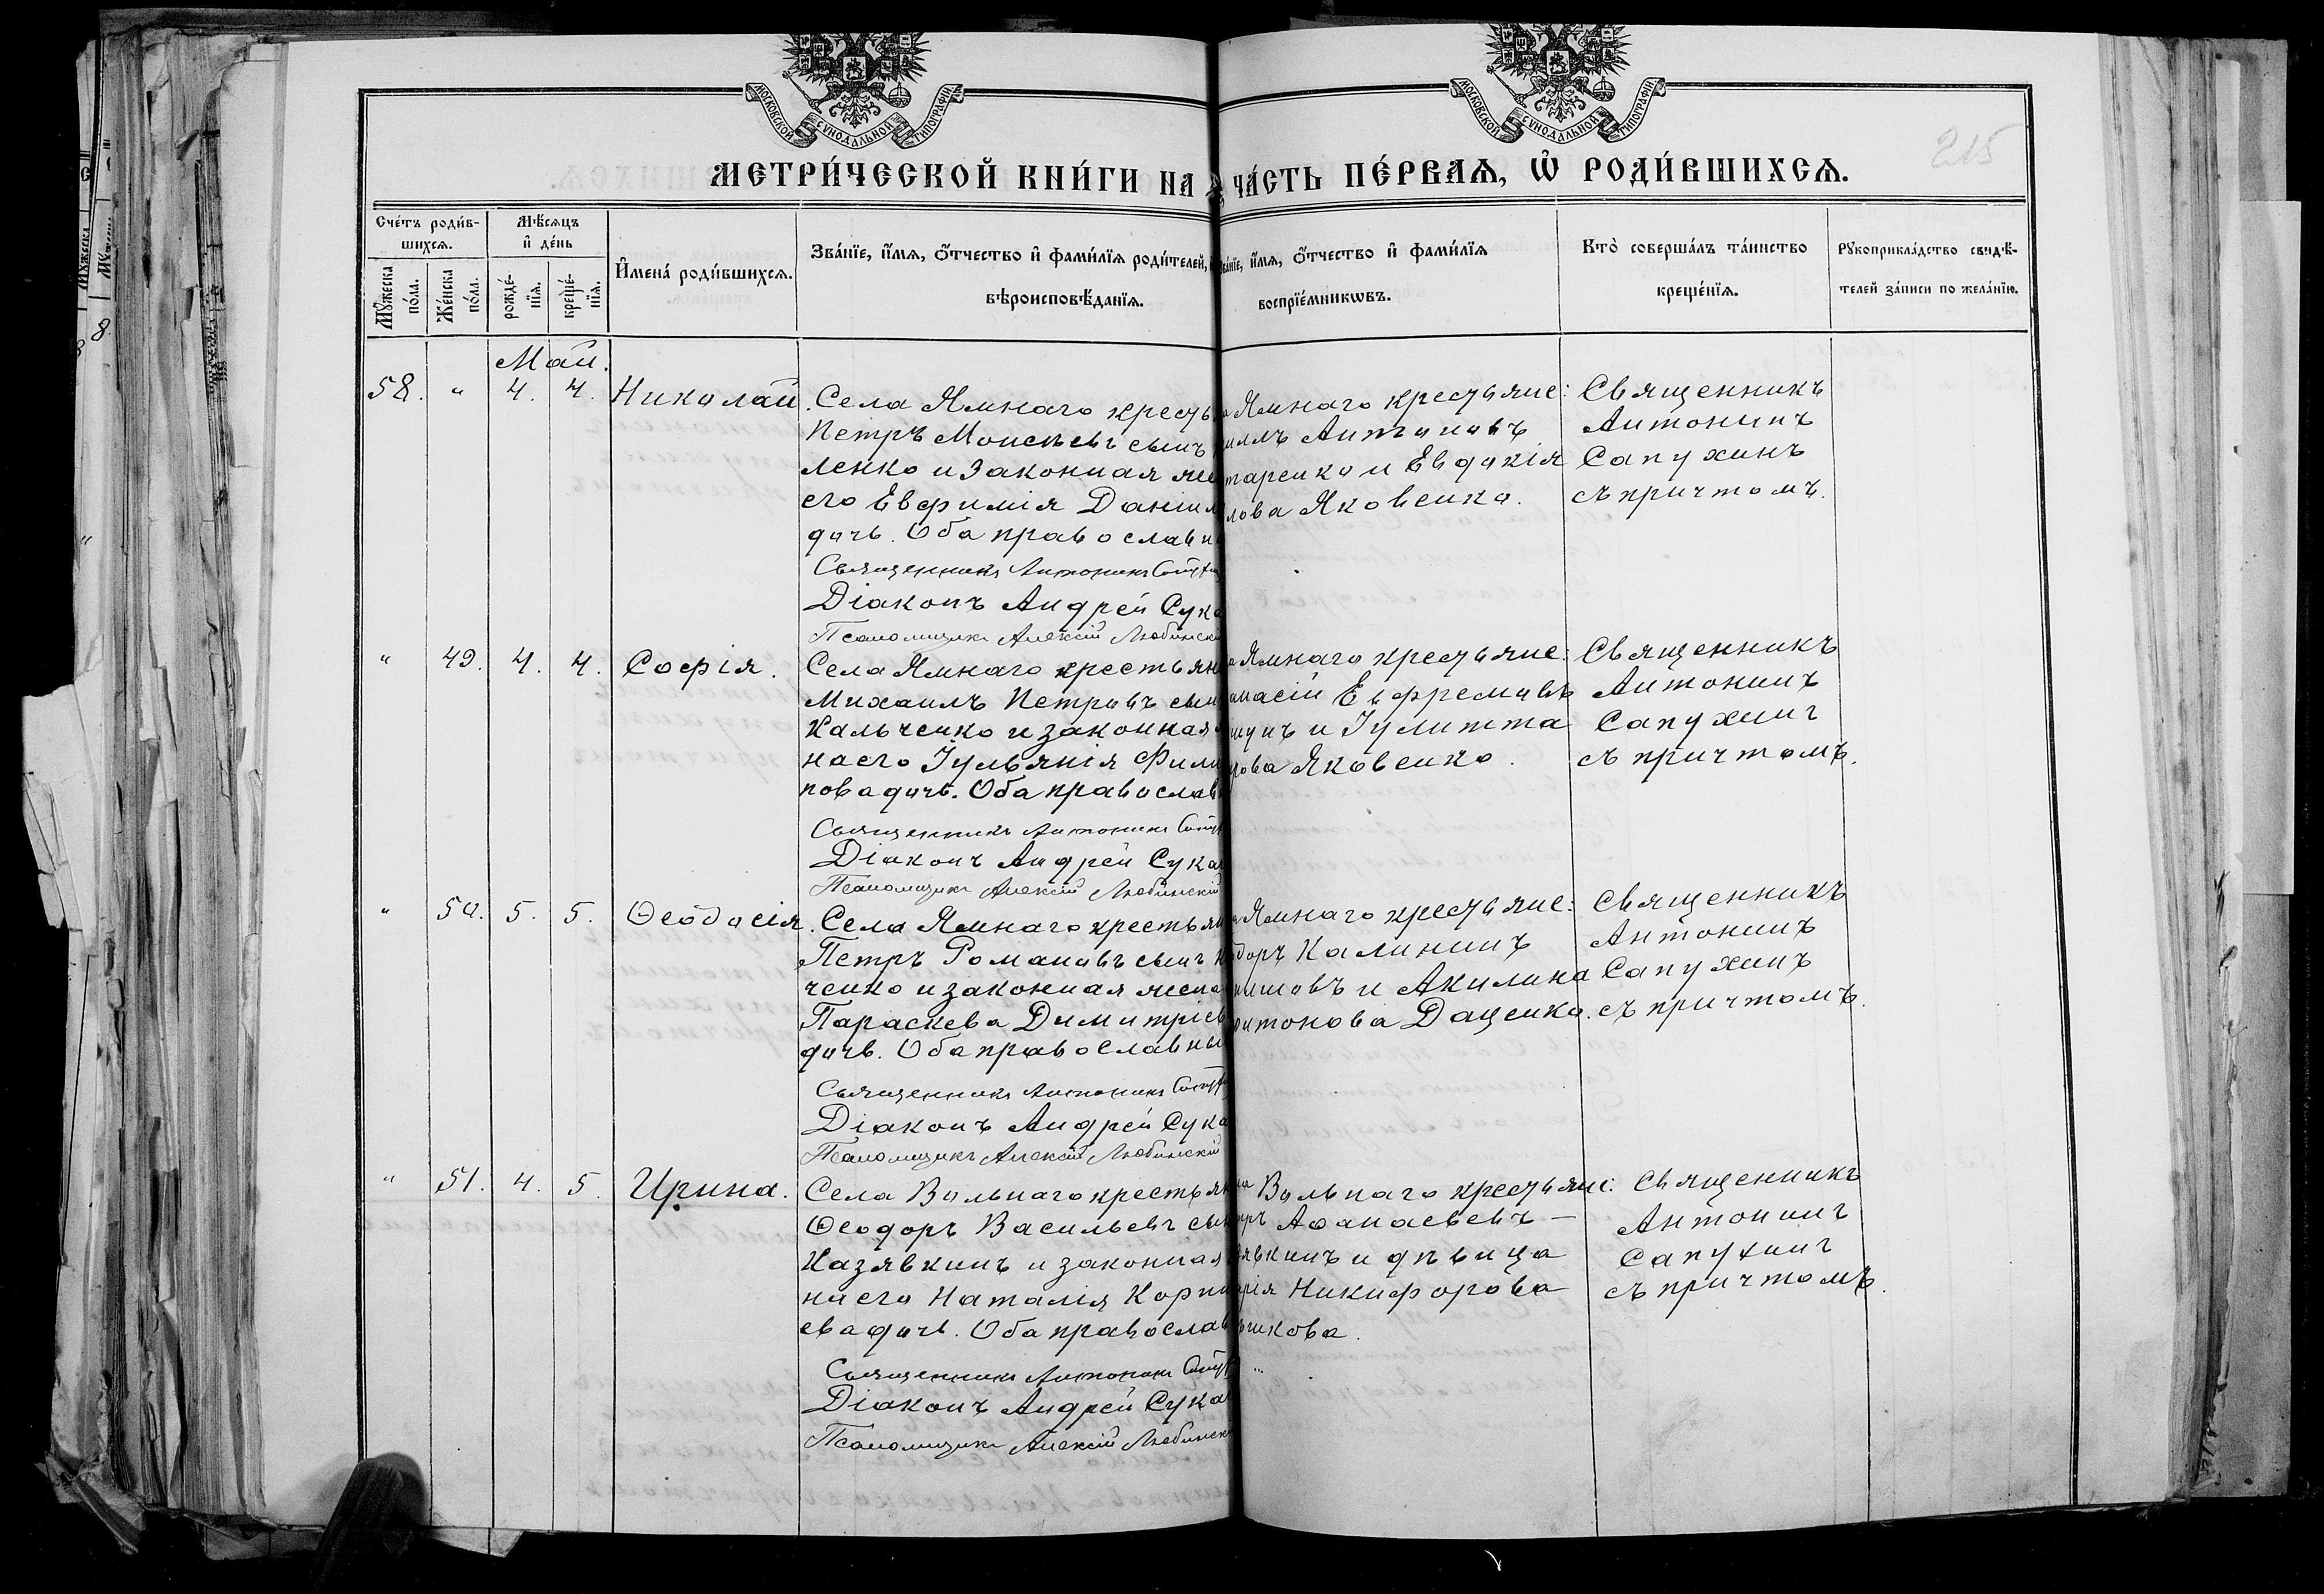 МОСКОВСКОЙ СУНОДАЛЬНОЙ ТИПОГРАФІИ
МОСКОВСКОЙ СУНОДАЛЬНОЙ ТИПОГРАФІИ
215
МЕТРИ́ЧЕСКОЙ КНИ́ГИ НА
ЧА́СТЬ ПЕ́РВАЯ, Ѽ РОДИ́ВШИХСЯ.
Сче́тъ роди́в-
шихся.
Мѣ́сяцъ
и҆ де́нь
Мꙋ́жеска
по́ла.
Же́нска
по́ла.
рожде́-
нїя.
креще́-
нїя.
И҆мена̀ роди́вшихся.
Зва́нїе, и҆́мя, ѻ҆́тчество и҆ фами́лїя роди́телей,
вѣроисповѣ́данїя.
Зва́нїе, и҆́мя, ѻ҆́тчество и҆ фами́лїя
воспрїе́мникѡвъ.
Кто̀ соверша́лъ та́инство
креще́нїя.
Рꙋкоприкла́дство свидѣ́-
телей за́писи по жела́нїю.
Май.
58. " 4. 4. Николай.
Села Ямнаго кресть
Петръ Моисѣевъ сынъ
ленко и законная же
его Евфимія Даніил
дочь. Оба православн
Священникъ Антонинъ Сапух
Діаконъ Андрей Сука
Псаломщикъ Алексій Любинскі
Ямнаго крестьяне:
иллъ Антоновъ
таренко и Евдокія
лова Яковенко.
Священникъ
Антонинъ
Сапухинъ
съ причтомъ.
" 49. 4. 4. Софія.
Села Ямнаго крестьян
Михаилъ Петровъ сын
Кальченко и законная
на его Іульянія Фили
пова дочь. Оба православ
Священникъ Антонинъ Сапух
Діаконъ Андрей Сука
Псаломщикъ Алексій Любинскій
Ямнаго крестьяне:
анасій Ефремовъ
шунъ и Іулитта
рова Яковенко.
Священникъ
Антонинъ
Сапухинъ
съ причтомъ.
" 50. 5. 5. Ѳеодосія.
Села Ямнаго крестьян
Петръ Романовъ сынъ К
ченко и законная жена
Параскева Димитріев
дочь. Оба православны
Священникъ Антонинъ Сапух
Діаконъ Андрей Сука
Псаломщикъ Алексій Любинскій
Ямнаго крестьяне:
доръ Калининъ
кишовъ и Акилина
ритонова Даценко.
Священникъ
Антонинъ
Сапухинъ
съ причтомъ.
" 51. 4. 5. Ирина.
Села Вольнаго крестьян
Ѳеодоръ Васильевъ сын
Казявкинъ и законная
на его Наталія Корни
ева дочь. Оба православ
Священникъ Антонинъ Сапух
Діаконъ Андрей Сука
Псаломщикъ Алексій Любинск
Вольнаго крестьяне:
тръ Аѳанасьевъ —
явкинъ и дѣвица
рія Никифорова
никова.
Священникъ
Антонинъ
Сапухинъ
съ причтомъ.